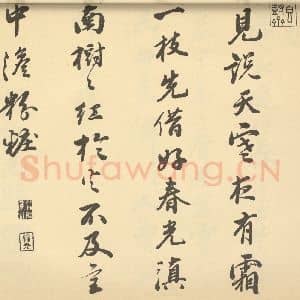 見説天寒夜有霜
一枝先借好春光滇
南樹〻紅於不及
中淡粉粧
Shufawang.CN